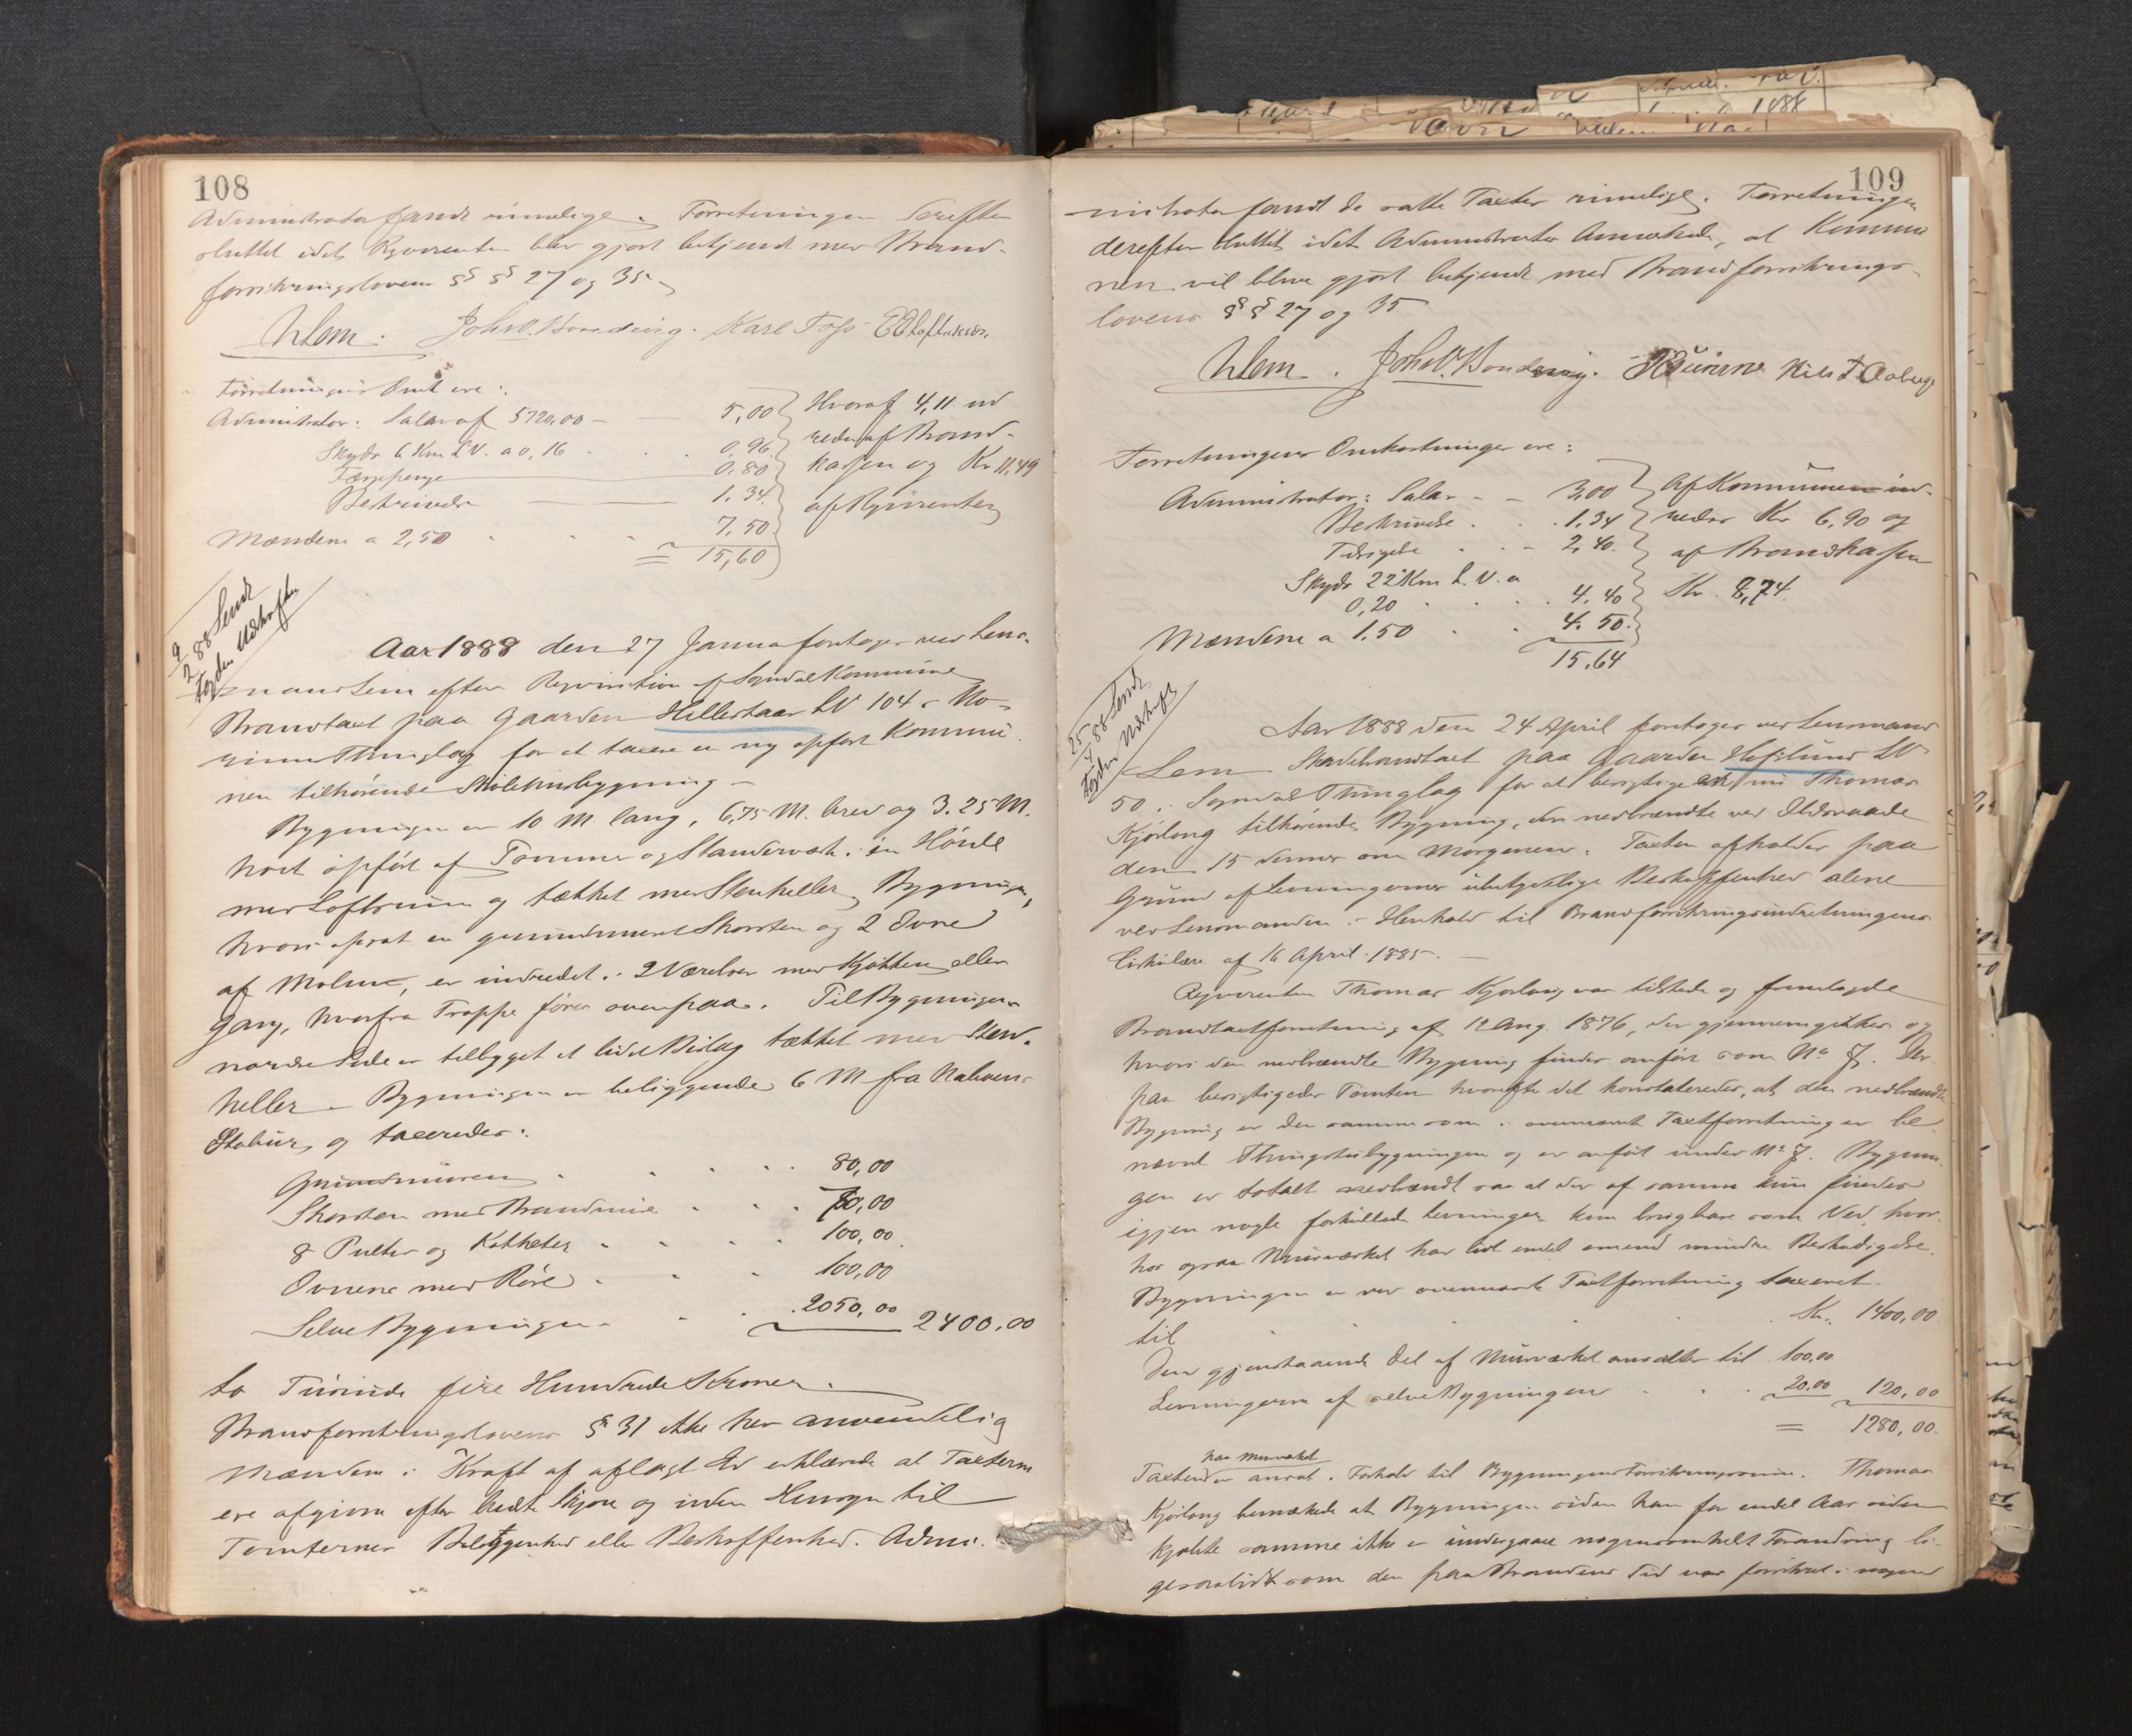 108
Administrator fandt rimelige. Forretningen derefter
sluttet idet Rqvirenten blev gjort bekjendt med Brand-
forsikringslovens §§ 27 og 35
Lem. Joh. Karl Foss
Forretningens Omk. ere:
Administrator: Salær af 5720,00 — 5,00 Hvoraf 4,11 ud
Skyds 6 Km L.V. a 0,16 0,96 redes af Brand-
Færgepenge 0,80 kassen og Kr 11,49
Beskrivelse 1,34 af Rqvirenten
Mændene a 2,50 7,50
= 15,60
9/2 88 Sendt
Fogden Udskriften
Aar 1888 den 27 Janua foretoges ved Lens-
mand Lem efter Reqvisition af Sogndal Kommune
Brandtaxt paa Gaarden Hillestaar LN 104 No-
rums Thinglag for at taxere en ny opført Kommu-
nen tilhørende Skolehusbygning —
Bygningen er 10 M. lang, 6,75 M. bred og 3.25 M.
høit opført af Tømmer og Standerværk i en Høide
med Loftsrum og tækket med Stenheller. Bygningen,
hvori opsat en grundmuret Skorsten og 2 Ovne
af Malm, er indredet i 2 Værelser med Kjøkken eller
Gang, hvorfra Trappe fører ovenpaa. Til Bygningens
nordre Side er tilbygget et lidet Bislag tækket med Sten-
heller — Bygningen er beliggende 6 M fra Naboens
Stabur, og taxeredes:
Grundmuren 80,00
Skorsten med Brandmur 70,00
8 Pulter og Katheter 100,00
Ovnene med Rør 100,00
Selve Bygningen 2050,00 2400,00
to Tusinde fire Hundrede Kroner.
Brandforsikringslovens § 31 ikke her anvendelig
Mændene i Kraft af aflagt Ed erklærede at Taxterne
ere afgivne efter bedste Skjøn og uden Hensyn til
Tomternes Beliggenhed eller Beskaffenhed. Admi-
109
nistrator fandt de satte Taxter rimelige. Forretningen
derefter sluttet idet Administrator Anmærkede, at Kommu
nen vil blive gjort bekjendt med Brandforsikrings-
lovens §§ 27 og 35
Lem. Joh. Nils
Forretningens Omkostninger ere:
Administrator: Salær — 3,00 Af Kommunen ud-
Beskrivelse 1,34 redes Kr 6,90 og
2,40 af Brandkassen
Skyds 22 Km L.V. a Kr. 8,74.
0,20 4,40
Mændene a 1.50 4.50
15,64
25/4 88 Sendt
Fogden Udskrift
Aar 1888 den 24 April foretoges ved Lensmand
Lem Skadebrandtaxt paa Gaarden Hofslund LN
50 i Sogndal Thinglag for at besigtige en Thomas
Kjørlaug tilhørende Bygning, der nedbrændte ved Ildsvaade
den 15 dennes om Morgenen. Taxten afholdes paa
Grund af Levningernes ubetydelige Beskaffenhed alene
ved Lensmanden i Henhold til Brandforsikringsindretningens
Cirkulære af 16 April 1885. —
Reqvirenten Thomas Kjørlaug var tilstede og fremlagde
Brandtaxtforretning af 12 Aug. 1876, der gjennemgikkes og
hvori den nedbrændte Bygning findes anført som No 7. Der
paa besigtigedes Tomten hvorefter det konstateredes, at den nedbrændte
Bygning er den samme som i ovennævnt Taxtforretning er be
nævnt Thingstubygningen og er anført under No 7. Bygnin
gen er totalt nedbrændt saa at der af samme kun findes
igjen nogle forkullede Levninger kun brugbare som Ved, hvor
hos ogsaa Murværket har lidt endel omend mindre Beskadigelse.
Bygningen er ved ovennævnte Taxtforretning taxeret
til Kr. 1400,00
Den gjenstaaende Del af Murværket ansættes til 100,00
Levningerne af selve Bygningen 20,00 120,00
= 1280,00.
paa Murværket
Taxten er ansat i Forhold til Bygningens Forsikringssum. Thomas
Kjørlaug bemærkede at Bygningen siden han for endel Aar siden
kjøbte samme ikke er undergaaet nogensomhelst Forandring li-
gesaalidt som den paa Brandens Tid var forsikret i nogen